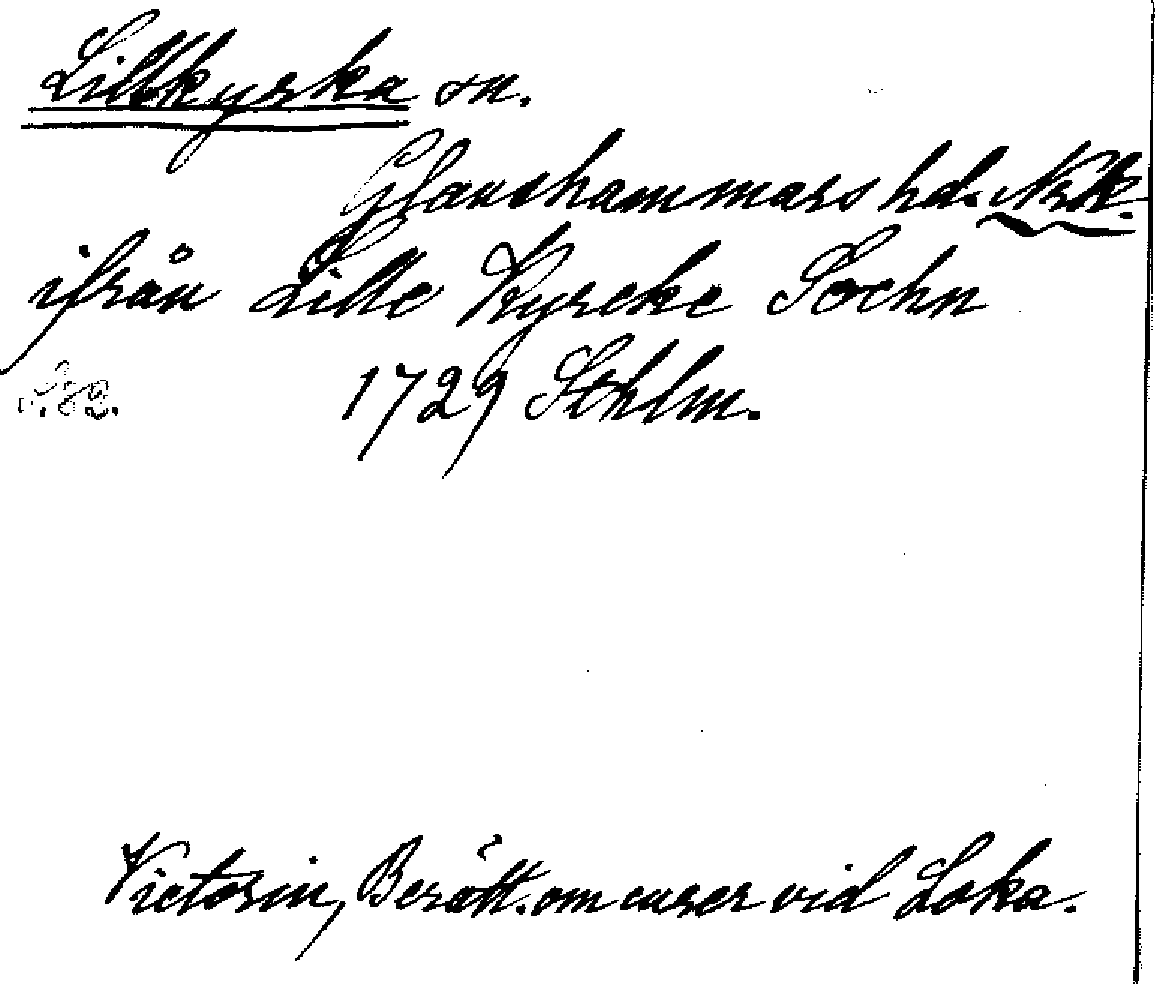 Lillkyrka sn.
Glanshammars hd. Nrk.
ifrån Lille Kyrcke Sochn
1729 Sthlm.
Victorin, Berätt. om curer vid Loka.